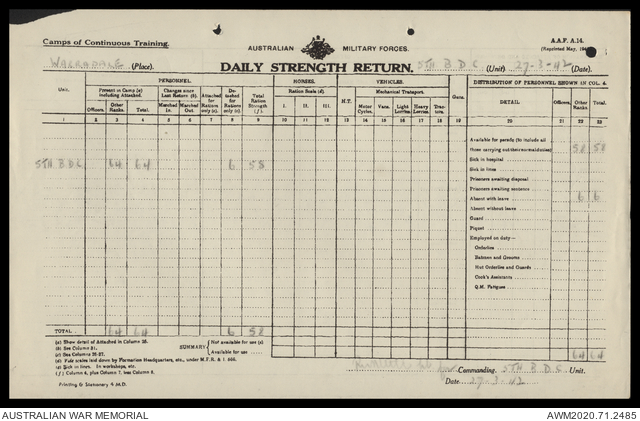 Camps of Continuous Training.
A.A.F. A.14.
(Reprinted May, 1941)
AUSTRALIAN MILITARY FORCES.
WARRADALE (Place).
DAILY STRENGTH RETURN.
5TH B.D.C. (Unit) 27-3-42 (Date).
Unit.
PERSONNEL.
HORSES.
VEHICLES.
Guns.
DISTRIBUTION OF PERSONNEL SHOWN IN COL. 4.
Present in Camp (a) including Attached.
Changes since Last Return (b).
Attached for Rations only (c).
Detached for Rations only (c).
Total Ration Strength (f).
Ration Scale (d).
H.T.
Mechanical Transport.
DETAIL
Officers.
Other Ranks.
Total.
Officers.
Other Ranks.
Total.
Marched In.
Marched Out.
I.
II.
III.
Motor Cycles.
Vans.
Light Lorries.
Heavy Lorries.
Tractors.
1 2 3 4 5 6 7 8 9 10 11 12 13 14 15 16 17 18 19 20 21 22 23
Available for parade (to include all those carrying out their normal duties) 58 58
Sick in hospital
5TH B.D.C. 64 64 6 58
Sick in lines
Prisoners awaiting disposal
Prisoners awaiting sentence
Absent with leave 6 6
Absent without leave
Guard
Piquet
Employed on duty—
Orderlies
Batmen and Grooms
Hut Orderlies and Guards
Cook's Assistants
Q.M. Fatigues
TOTAL 64 64 6 58
(a) Show detail of Attached in Column 26.
(b) See Column 31.
(c) See Columns 25-27.
(d) Vide scales laid down by Formation Headquarters, etc., under M.F.R. & I. 666.
(e) Sick in lines. In workshops, etc.
(f) Column 4, plus Column 7, less Column 8.
SUMMARY
Not available for use (e)
Available for use
64 64
Commanding 5TH B.D.C. Unit.
Date 27-3-42
Printing & Stationery 4 M.D.
AUSTRALIAN WAR MEMORIAL
AWM2020.71.2485